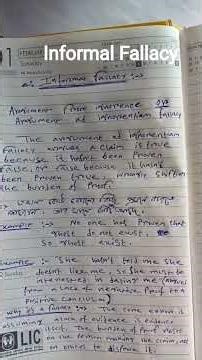 Informal Fallacy
1
FEBRUARY
Informal Fallacy :-
Argument from ignorance or
Argument ad ignorantiam fallacy
The argument ad ignorantiam
fallacy a claim is true
because it hasn't been proven
false, or false because it hasn't
been proven true, wrongly shifting
the burden of proof.
Example :- No one has proven that
ghost do not exist.
So ghost exist.
Example :- She hasn't told me she
doesn't like me, so she must be
interested in dating me (moves
from a lack of negative proof to a
positive conclusion)
Why it's a fallacy :- The core error is
assuming lack of evidence is evidence
itself. The burden of proof rests
on the person making the claim, not
on others to disprove it.
LIC